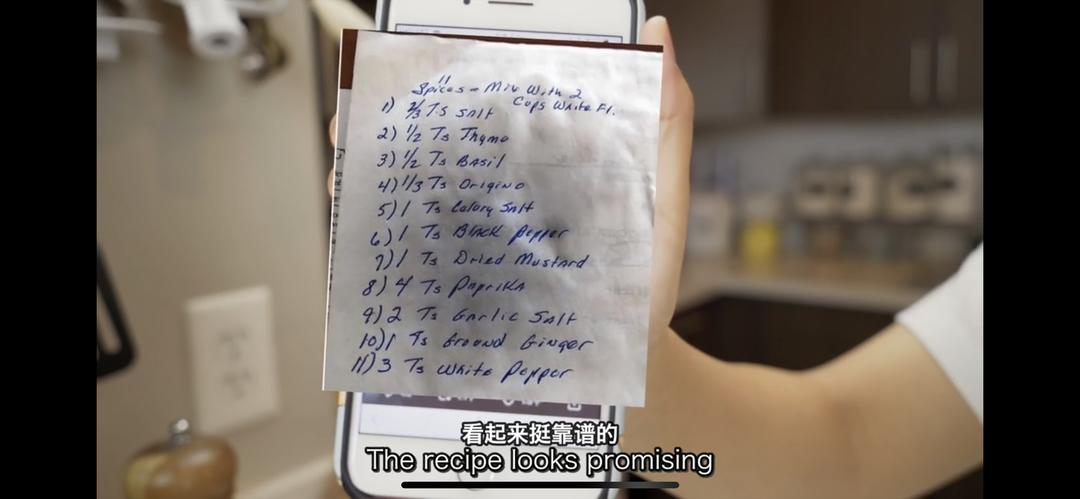 11
Spices - Mix With 2
Cups White Fl.
1) 2/3 Ts Salt
2) 1/2 Ts Thyme
3) 1/2 Ts Basil
4) 1/3 Ts Origino
5) 1 Ts Celary Salt
6) 1 Ts Black Pepper
7) 1 Ts Dried Mustard
8) 4 Ts Paprika
9) 2 Ts Garlic Salt
10) 1 Ts Ground Ginger
11) 3 Ts White Pepper
看起来挺靠谱的
The recipe looks promising